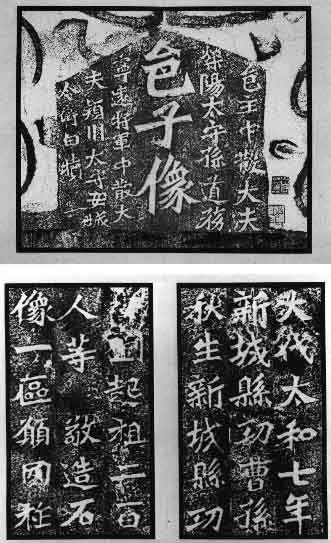 邑主中散大夫
滎陽太守孫道務
邑子像
寧遠將軍中散大
夫潁川太守安城
令衛白犢
大伐太和七年
新城縣功曹孫
秋生新城縣功
曹劉起祖二百
人等敬造石
像一區願國祚